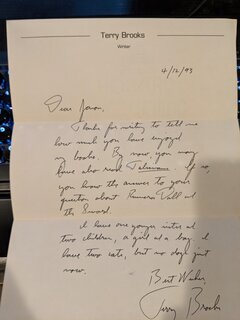 Terry Brooks
Writer
4/12/93
Dear Jason,
Thanks for writing to tell me
how much you have enjoyed
my books. By now, you may
have also read Talismans. If so,
you know the answer to your
question about Rimmer Dall and
the Sword.
I have one younger sister and
two children, a girl and a boy. I
have two cats, but no dogs just
now.
Best Wishes
Terry Brooks